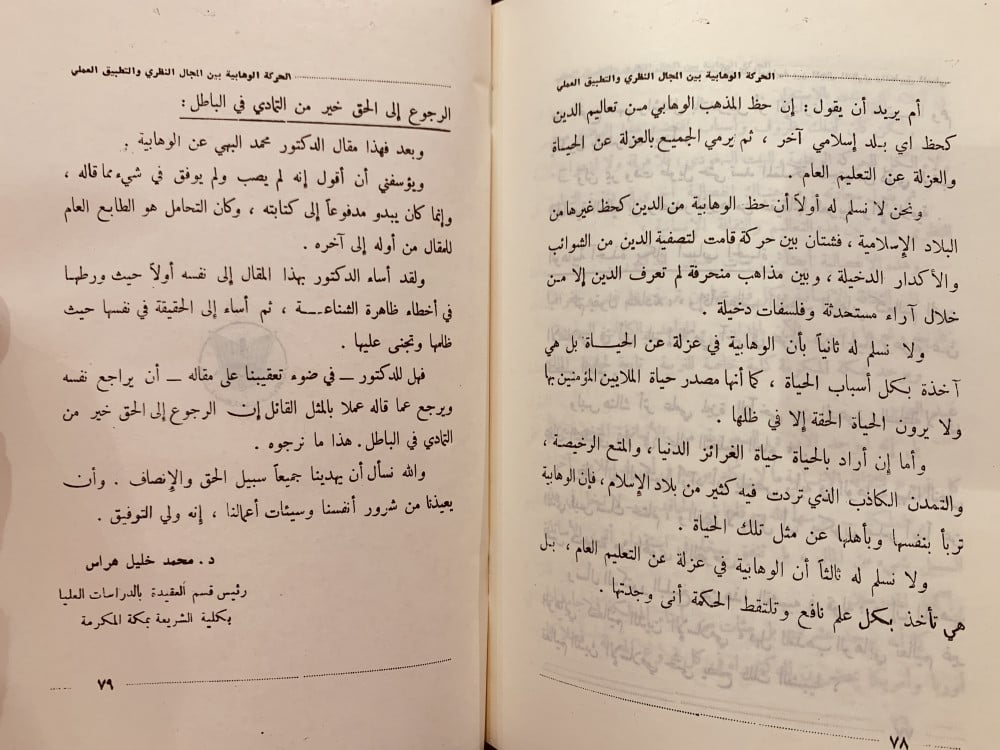 الحركة الوهابية بين المجال النظري والتطبيق العملي
أم يريد أن يقول : إن حظ المذهب الوهابي من تعاليم الدين
كحظ اي بلد إسلامي آخر ، ثم يرمي الجميع بالعزلة عن الحياة
والعزلة عن التعليم العام .
ونحن لا نسلم له أولاً أن حظ الوهابية من الدين كحظ غيرها من
البلاد الإسلامية ، فشتان بين حركة قامت لتصفية الدين من الشوائب
والأكدار الدخيلة ، وبين مذاهب منحرفة لم تعرف الدين إلا من
خلال آراء مستحدثة وفلسفات دخيلة .
ولا نسلم له ثانياً بأن الوهابية في عزلة عن الحياة بل هي
آخذة بكل أسباب الحياة ، كما أنها مصدر حياة الملايين المؤمنين بها
ولا يرون الحياة الحقة إلا في ظلها .
وأما إن أراد بالحياة حياة الغرائز الدنيا ، والمتع الرخيصة ،
والتمدن الكاذب الذي تردت فيه كثير من بلاد الإسلام ، فإن الوهابية
تربأ بنفسها وبأهلها عن مثل تلك الحياة .
ولا نسلم له ثالثاً أن الوهابية في عزلة عن التعليم العام ، بل
هي تأخذ بكل علم نافع وتلتقط الحكمة أنى وجدتها .
٧٨
الحركة الوهابية بين المجال النظري والتطبيق العملي
الرجوع إلى الحق خير من التمادي في الباطل :
وبعد فهذا مقال الدكتور محمد البهي عن الوهابية .
ويؤسفني أن أقول إنه لم يصب ولم يوفق في شيء مما قاله ،
وإنما كان يبدو مدفوعاً إلى كتابته ، وكان التحامل هو الطابع العام
للمقال من أوله إلى آخره .
ولقد أساء الدكتور بهذا المقال إلى نفسه أولاً حيث ورطها
في أخطاء ظاهرة الشناعـــة ، ثم أساء إلى الحقيقة في نفسها حيث
ظلمها وتجنى عليها .
فهل للدكتور – في ضوء تعقيبنا على مقاله – أن يراجع نفسه
ويرجع عما قاله عملا بالمثل القائل إن الرجوع إلى الحق خير من
التمادي في الباطل . هذا ما نرجوه .
والله نسأل أن يهدينا جميعاً سبيل الحق والإنصاف . وأن
يعيذنا من شرور أنفسنا وسيئات أعمالنا ، إنه ولي التوفيق .
د . محمد خليل هراس
رئيس قسم العقيدة بالدراسات العليا
بكلية الشريعة بمكة المكرمة
٧٩